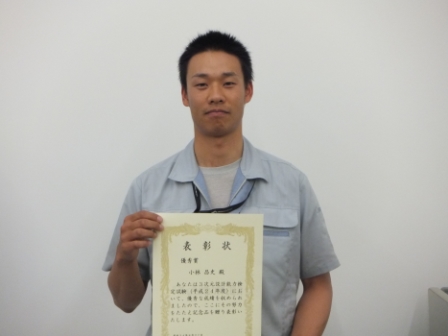 表彰状
優秀賞
小林 昌光 殿
あなたは三次元設計能力検
定試験（平成２４年度）にお
いて、優秀な成績を収められ
ましたので、ここにその努力
をたたえ記念品を贈り表彰い
たします。